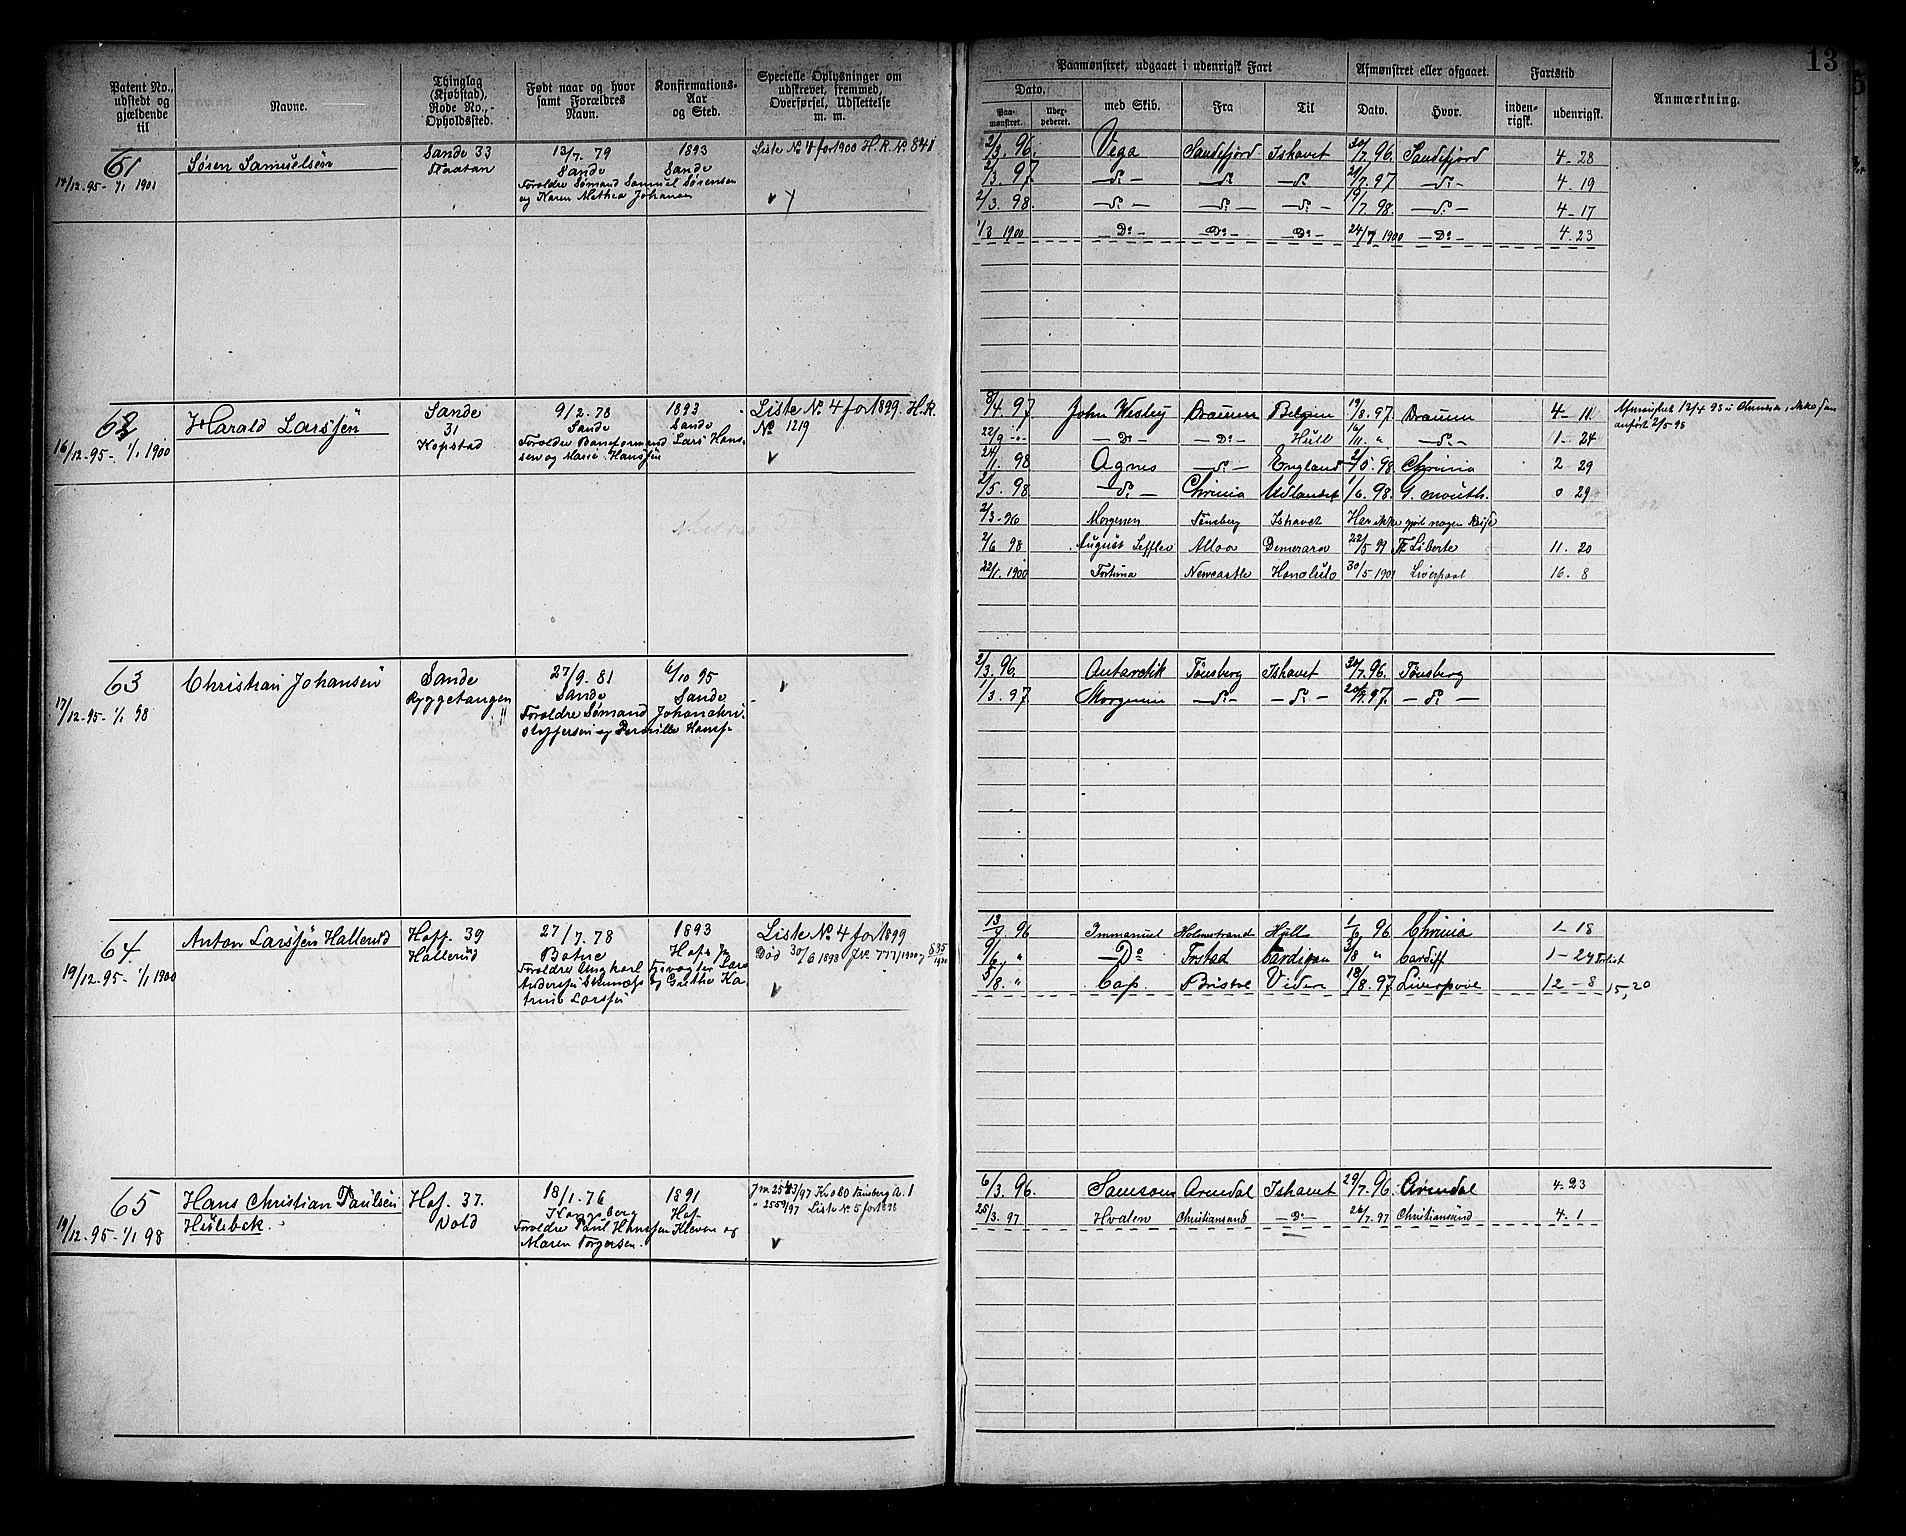 13
Patent No., udstedt og gjældende til
Navne.
Thinglag (Kjøbstad), Rode No., - Opholdssted.
Født naar og hvor samt Forældres Navn.
Konfirmations- Aar og Sted.
Specielle Oplysninger om udskrevet, fremmed, Overførsel, Udslettelse m. m.
Paamønstret, udgaaet i udenrigsk Fart
Afmønstret eller afgaaet.
Fartstid
Anmærkning.
Dato.
med Skib.
Fra
Til
Dato.
Hvor.
inden- rigsk.
udenrigsk.
Paa- mønstret.
61
17/12.95- 1/1 1901
Søren Samuelsen
Sande 33
13/7. 79
Sande
Foreldre Sømand Samuel Sørensen
og Karen Mathea Johansen
1893
Sande
Liste No 4 for 1900 H.R. No 841
2/3. 96. Vega Sandefjord Ishavet 30/7. 96. Sandefjord 4-28
2/3. 97. -do- -do- -do- 21/7. 97 -do- 4 19
2/3. 98. -do- -do- -do- 19/7. 98. -do- 4-17
1/3 1900 -Do- -Do- -Do- 24/7 1900 -Do- 4.23
62
16/12.95- 1/1 1900
Harald Larssen
Sande
31
Kopstad
9/2. 78
Sande
Foreldre Baneformand Lars Hans-
sen og Marie Hanssen
1893
Sande
Liste No 4 for 1899. H.R.
No 1219
8/4 97 John Wesley Drammen Belgien 19/8. 97. Drammen 4-11
22/9 -"- -Do- -Do- Hull 16/11. " -do- 1-24
24/1. 98 Agnes -do- England 2/5. 98. Chrinia 2 29
2/5. 98 -do- Chrinia Udlandet 1/6. 98. G. mouth. 0 29
2/3-96 Morgenen Tønsberg Ishavet Har ikke gjort nogen Reise
2/6 98 August Leffler Alloa Demerara 22/5 99 Liberte 11. 20
22/1. 1900 Fortuna Newcastle Honolulo 30/5 1901 Liverpool 16. 8
anført 2/5 98
63
17/12.95- 1/1 98
Christian Johansen
Sande
Ryggetangen
27/9. 81
Sande
Foreldre Sømand Johan Kri-
stoffersen og Pernille Hansf.
6/10 95
Sande
2/3. 96. Antarctik Tønsberg Ishavet 30/7. 96. Tønsberg
1/3. 97 Morgenen -do- -do- 20/9. 97. -do-
64
19/12.95- 1/1 1900
Anton Larssen Hallerud
Hoff. 39
Hallerud
27/7. 78
Botne
1893
Hof
Liste No 4 for 1899
Død 30/6 1898
13/4 96 Immanuel Holmestrand Hull 1/6 96 Chrinia 1-18
9/6 " -Do- Frstad Cardigan 3/8 " Cardiff 1-27
5/8. " Cap Bristol 18/8. 97. Liverpool 12-8 15,20
65
19/12.95- 1/1 98
Hans Christian Paulsen
Hulebek.
Hof. 37.
Vold
18/1. 76
Kongsberg
Foreldre Paul Hanssen Kleven og
Maren Torgersen.
1891
Hof
Liste No 5 for 1898
6/3. 96. Samson Arendal Ishavet 29/7. 96. Arendal 4-23
25/3. 97 Hvalen Christiansand -Do- 26/7. 97 Christiansand 4. 1